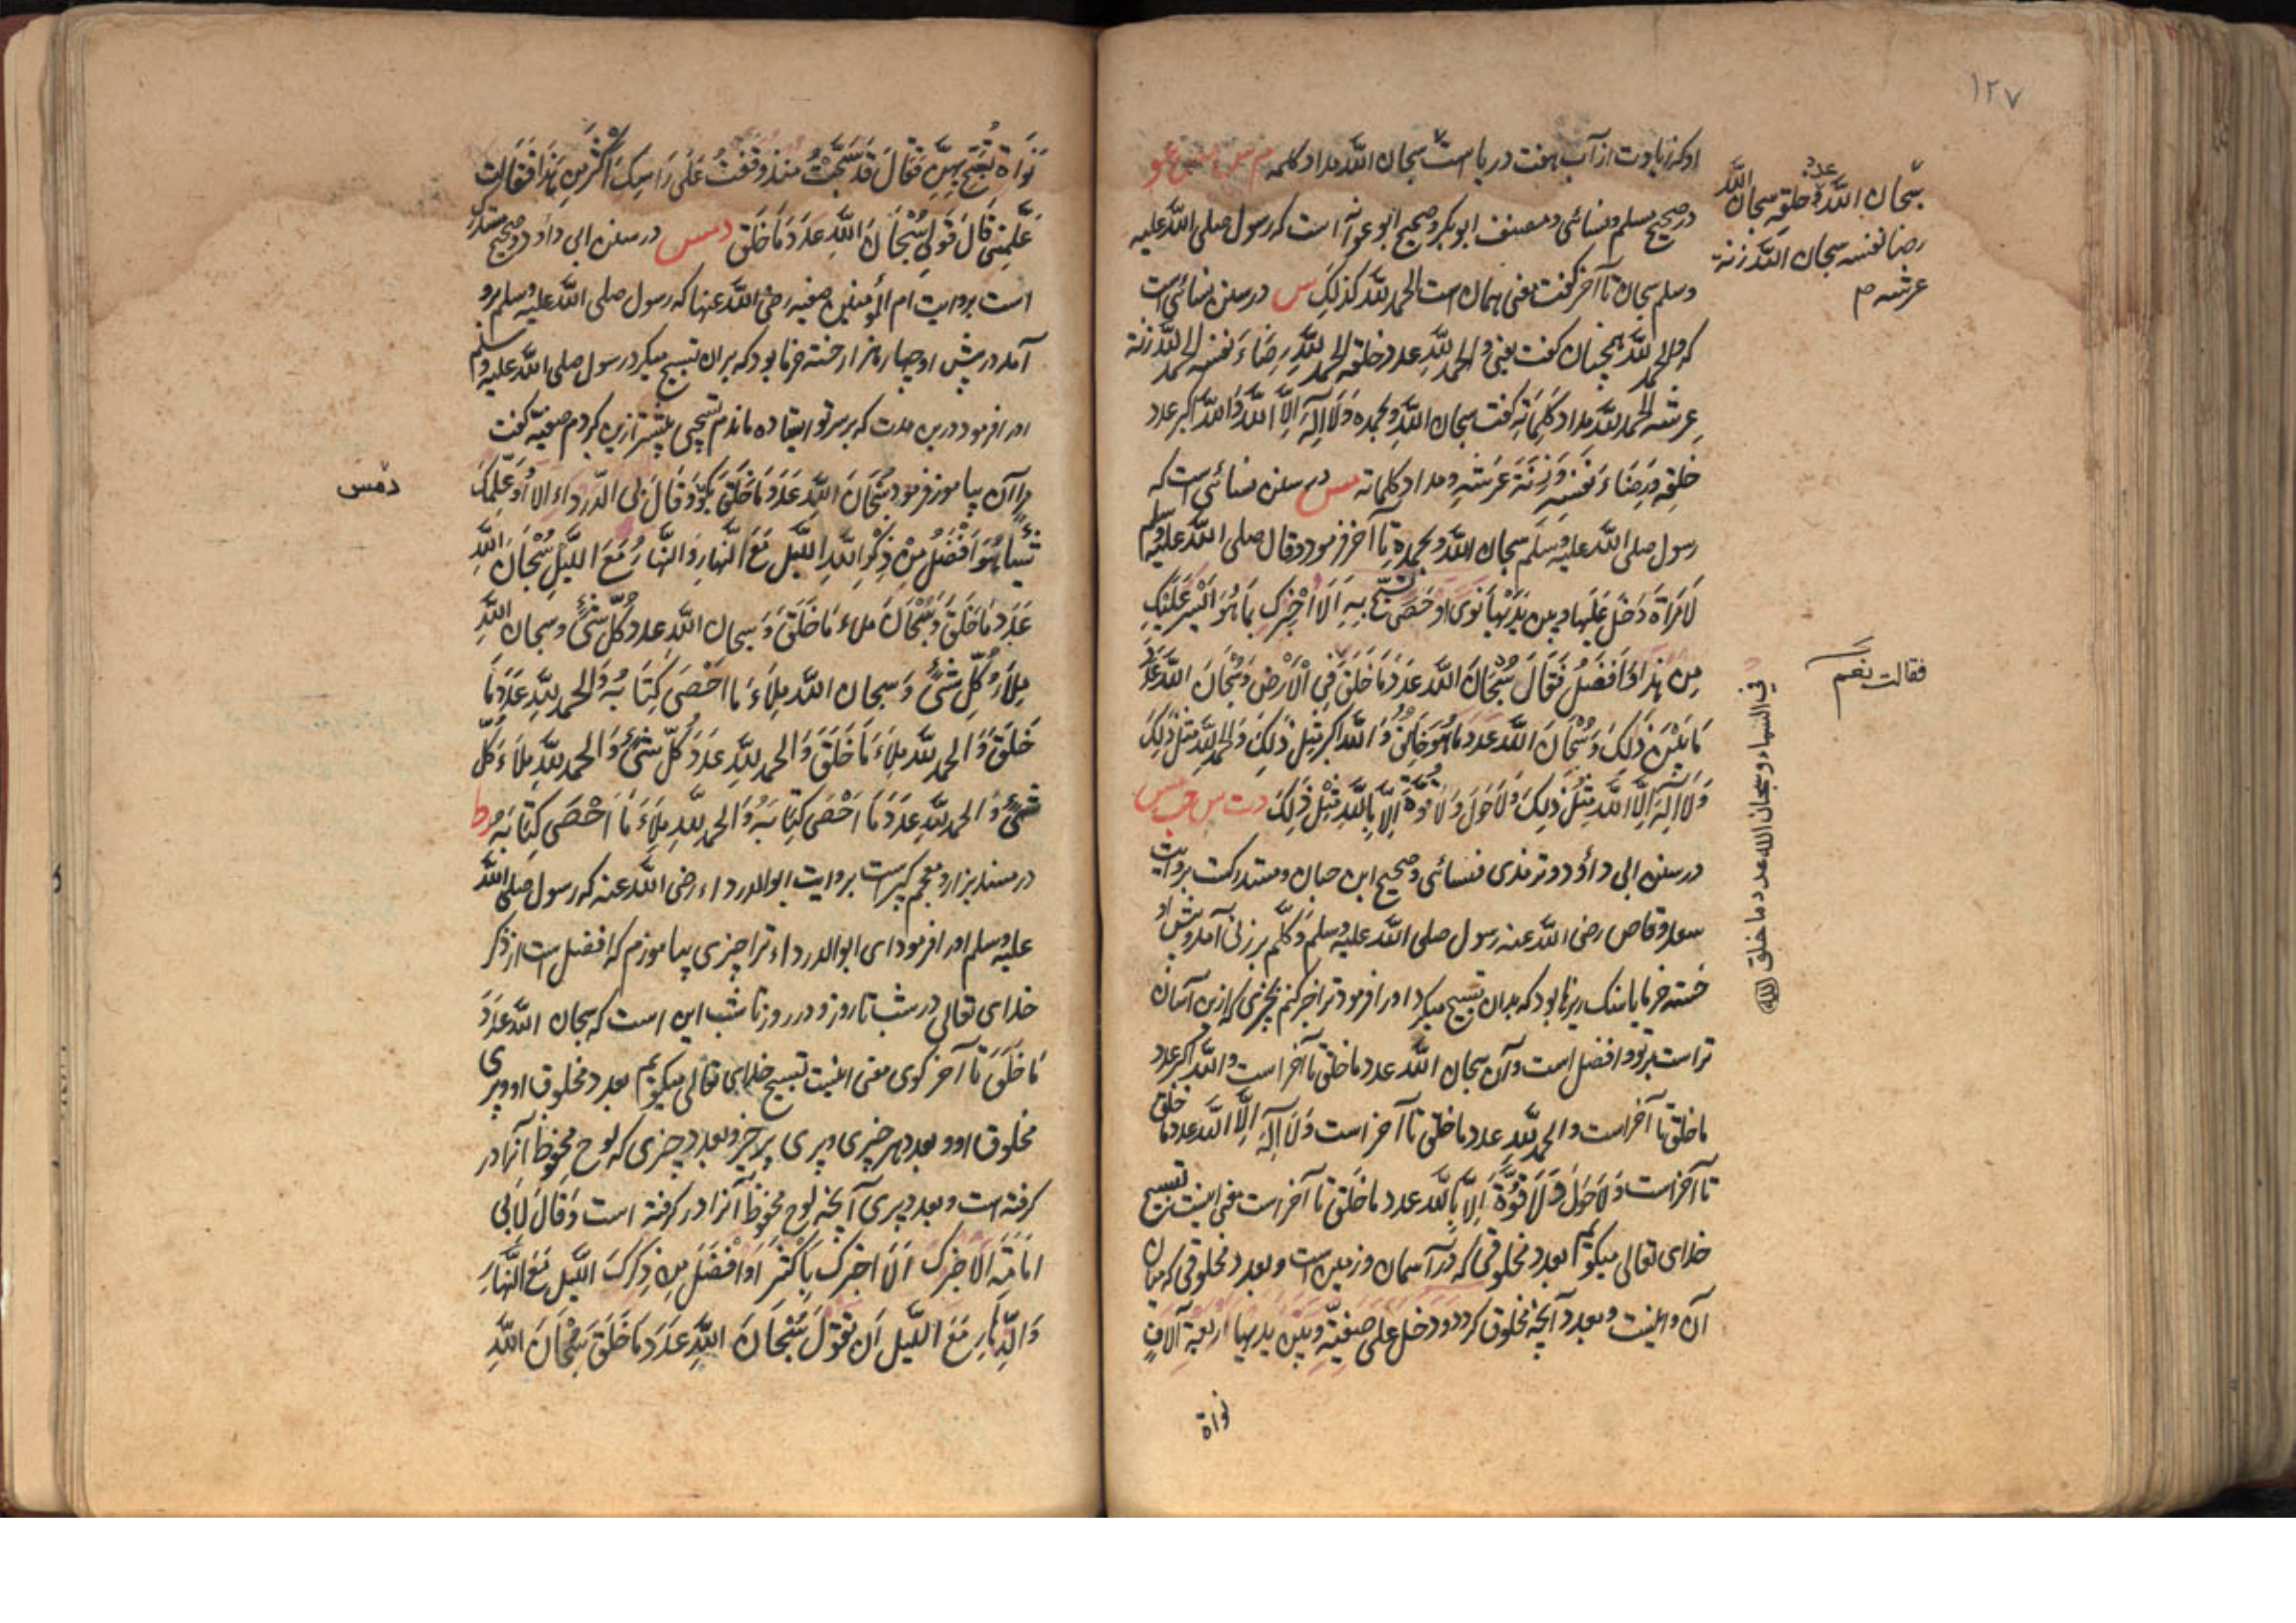 ۱۲۷
او که زیادت از آب هفت دریا است سبحان الله مداد کلمه م س مص عو
در صحیح مسلم و نسائی و مصنف ابوبکر و صحیح ابو عوانه است که رسول صلی الله علیه
وسلم سبحان تا آخر گفت معنی همان است الحمد لله کذلک س در سنن نسائی است
که والحمد لله همچنان گفت یعنی والحمد لله عدد خلقه الحمد لله رضاء نفسه الحمد لله زنة
عرشه الحمد لله مداد کلماته گفت سبحان الله وبحمده ولا اله الا الله والله اکبر عدد
خلقه ورضاء نفسه وزنة عرشه ومداد کلماته س در سنن نسائی است که
رسول صلی الله علیه وسلم سبحان الله وبحمده تا آخر فرمود وقال صلی الله علیه وسلم
لامرأة دخل علیها وبین یدیها نوی او حصی تسبح به الا اخبرک بما هو ایسر علیک
من هذا وافضل فقال سبحان الله عدد ما خلق فی الارض وسبحان الله عدد
ما بین ذلک وسبحان الله عدد ما هو خالق والله اکبر مثل ذلک والحمد لله مثل ذلک
ولا اله الا الله مثل ذلک ولا حول ولا قوة الا بالله مثل ذلک د ت س حب مس
در سنن ابی داؤد و ترمذی نسائی و صحیح ابن حبان و مستدرکت بروایت
سعد وقاص رضی الله عنه رسول صلی الله علیه وسلم بر زنی آمد و پیش او
خسته خرما یا سنک ریزها بود که بدان تسبیح میکرد او را فرمود ترا خبر کنم بچیزی که ازین آسان
تراست بر تو و افضل است و آن سبحان الله عدد ما خلق تا آخر است والله اکبر عدد
ما خلق تا آخر است والحمد لله عدد ما خلق تا آخر است ولا اله الا الله عدد ما خلق
تا آخر است ولا حول ولا قوة الا بالله عدد ما خلق تا آخر است معنی اینست تسبیح
خدای تعالی میکویم بعدد مخلوقی که در آسمان و زمین است و بعدد مخلوقی که میان
آن واینست و بعدد آنچه مخلوق کردد ودخل علی صفیة وبین یدیها اربعة آلاف
نواة
سبحان الله عدد خلقه سبحان الله
رضا نفسه سبحان الله زنة
عرشه م
فقالت نعم
فی السماء وسبحان الله عدد ما خلق
نواة تسبح بهن فقال قد سبحت منذ وقفت علی راسک اکثر من هذا فقالت
علمنی قال قولی سبحان الله عدد ما خلق د مس در سنن ابی داؤد و صحیح مستدرک
است بروایت ام المؤمنین صفیه رضی الله عنها که رسول صلی الله علیه وسلم برو
آمد در پیش او چهار هزار خسته خرما بود که بران تسبیح میکرد رسول صلی الله علیه وسلم
او را فرمود درین مدت که بر سر تو ایستاده ماندم تسبیحی بیشتر ازین کردم صفیه گفت
مرا آن بیاموز فرمود سبحان الله عدد ما خلق بکو وقال لابی الدرداء الا اعلمک
شیئا هو افضل من ذکر الله اللیل مع النهار والنهار مع اللیل سبحان الله
عدد ما خلق وسبحان ملاء ما خلق وسبحان الله عدد کل شئ وسبحان الله
ملاء کل شئ وسبحان الله ملاء ما احصی کتابه والحمد لله عدد ما
خلق والحمد لله ملاء ما خلق والحمد لله عدد کل شئ والحمد لله ملاء کل
شئ والحمد لله عدد ما احصی کتابه والحمد لله ملاء ما احصی کتابه ر ط
در مسند بزار و معجم کبیرست بروایت ابوالدرداء رضی الله عنه که رسول صلی الله
علیه وسلم او را فرمود ای ابوالدرداء ترا چیزی بیاموزم که افضل است از ذکر
خدای تعالی در شب تا روز و در روز تا شب این است که سبحان الله عدد
ما خلق تا آخر کوی معنی اینست تسبیح خدای تعالی میکویم بعدد مخلوق او و پری
مخلوق او و بعدد هر چیزی و پری هر چیز و بعدد چیزی که لوح محفوظ آنرا در
کرفته است و بعدد پری آنچه لوح محفوظ آنرا در کرفته است وقال لابی
امامة الا اخبرک الا اخبرک باکثر او افضل من ذکرک اللیل مع النهار
والنهار مع اللیل ان تقول سبحان الله عدد ما خلق سبحان الله
د مس